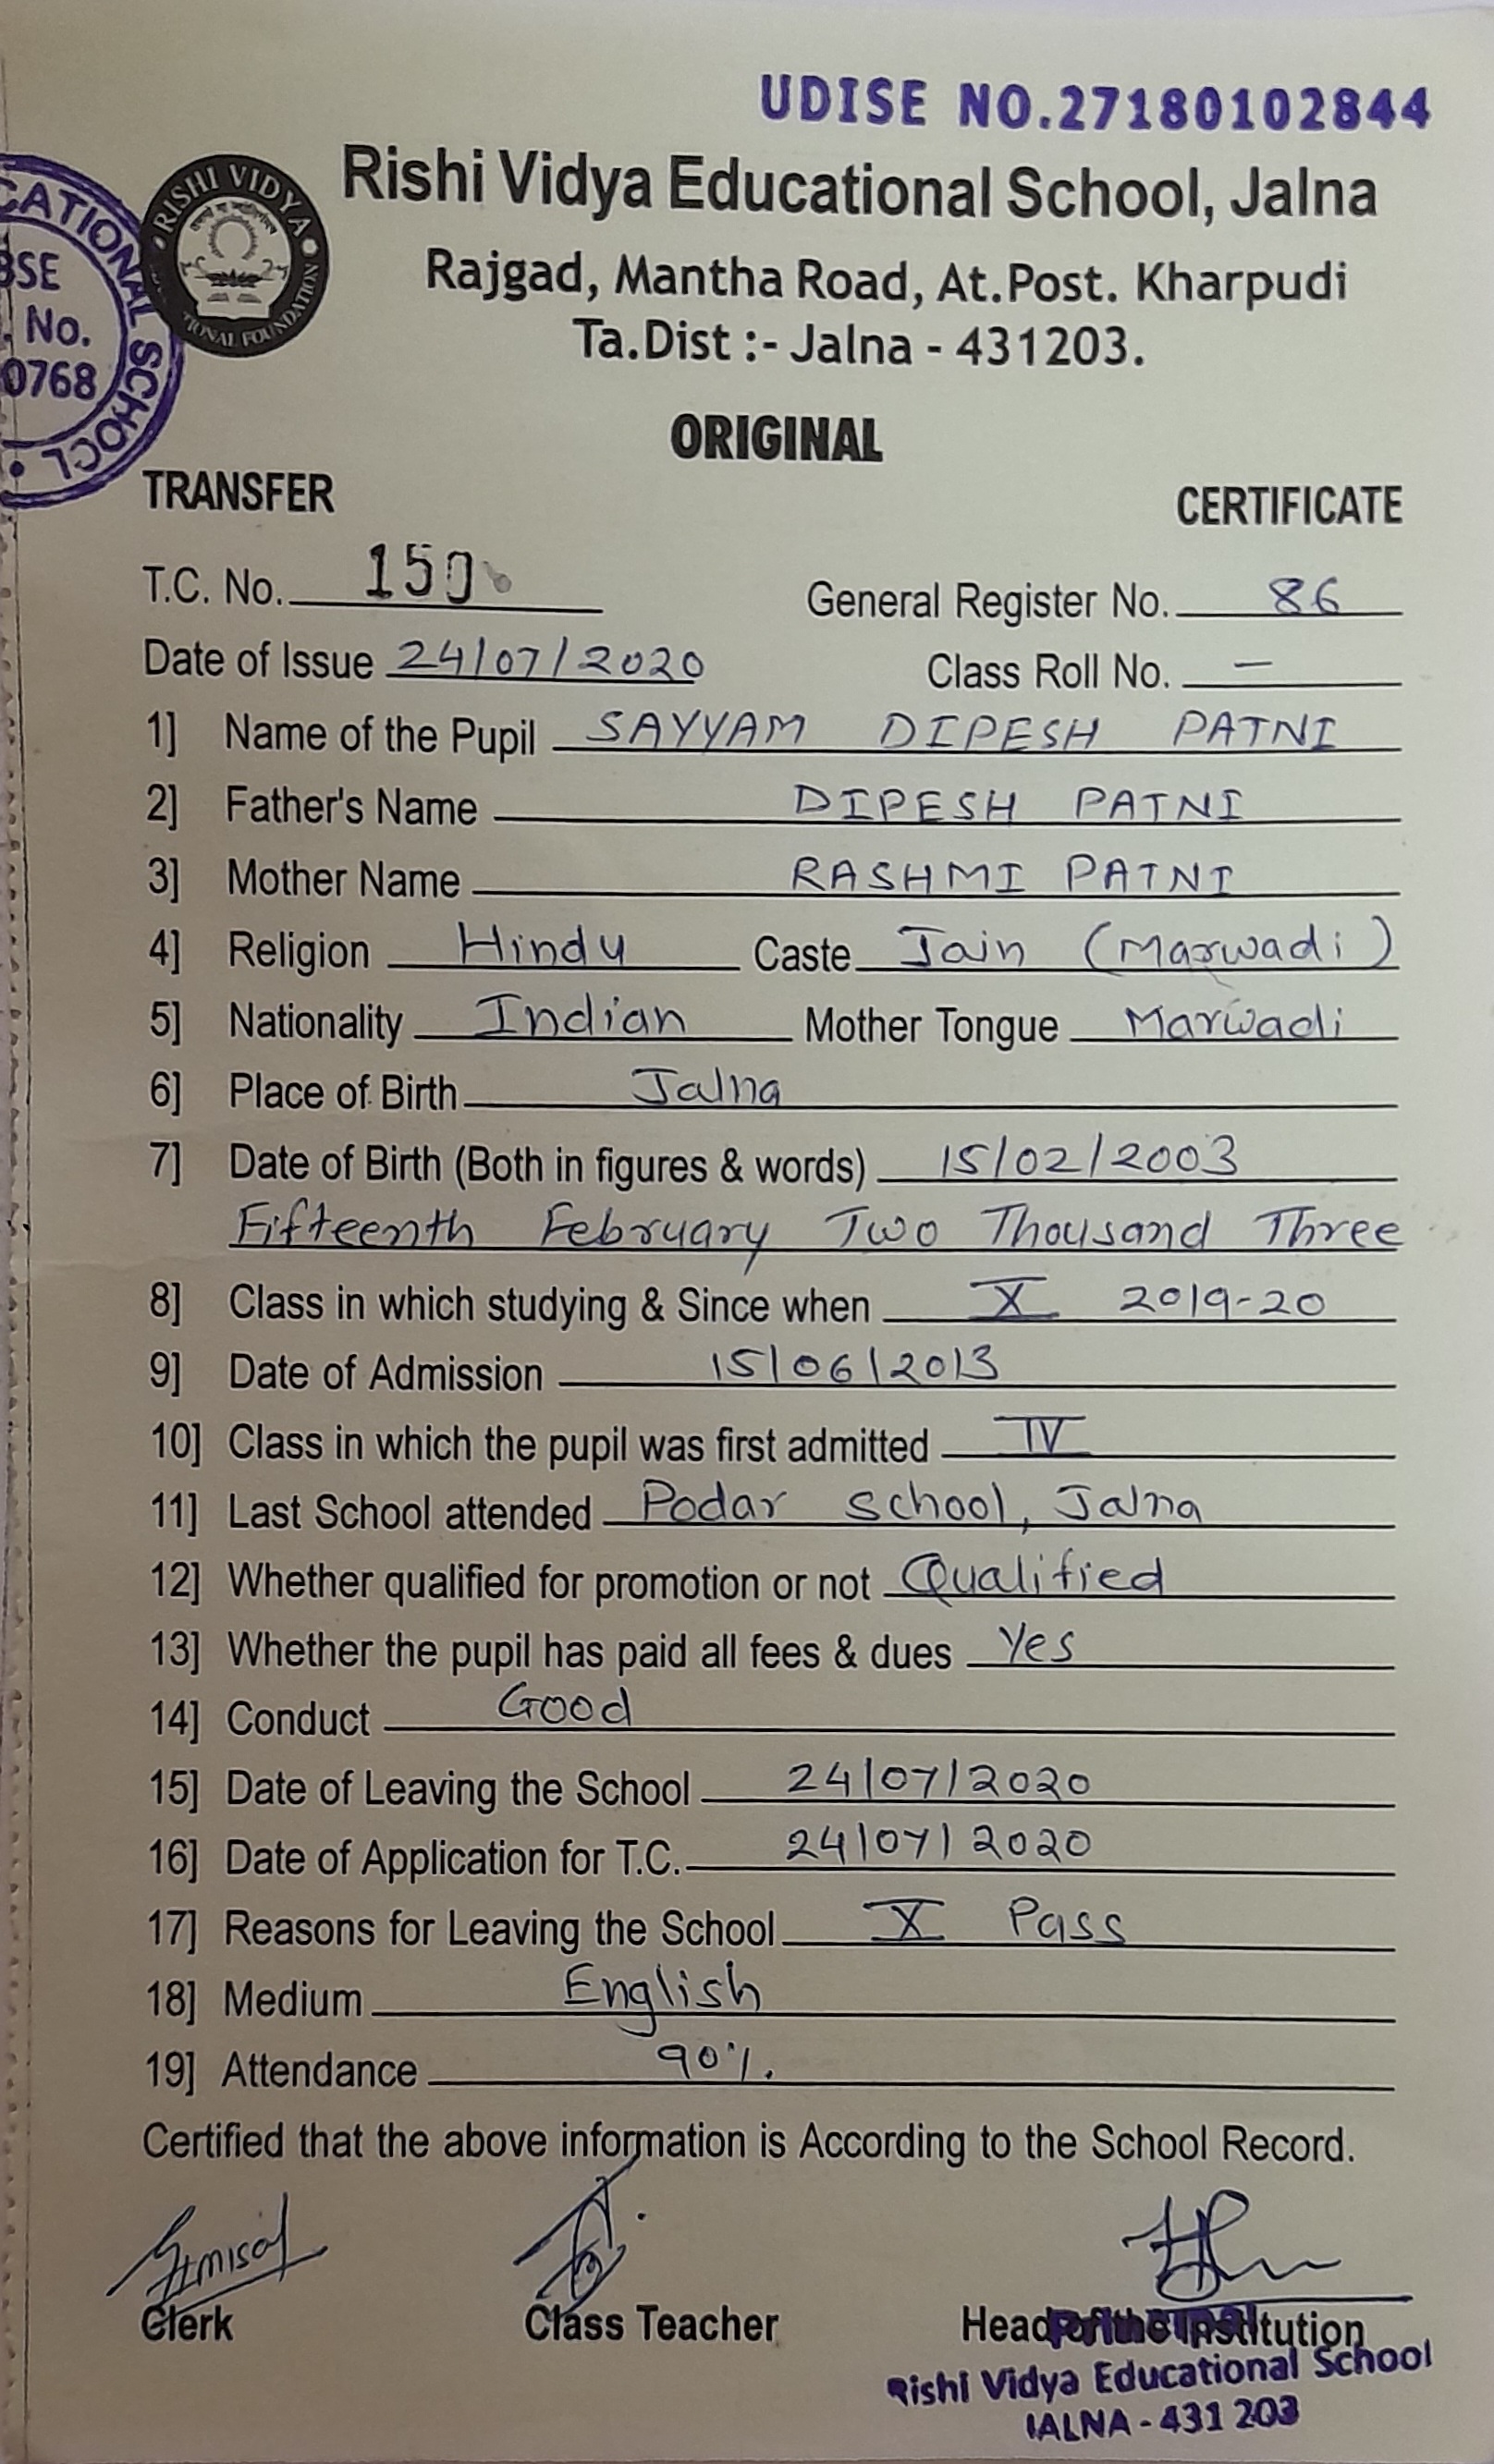 UDISE NO.27180102844
Rishi Vidya Educational School, Jalna
Rajgad, Mantha Road, At.Post. Kharpudi
Ta.Dist :- Jalna - 431203.
RISHI VIDYA
TIONAL FOUNDATION
CATIONAL SCHOOL
BSE
No.
0768
ORIGINAL
TRANSFER CERTIFICATE
T.C. No. 150 General Register No. 86
Date of Issue 24/07/2020 Class Roll No. —
1] Name of the Pupil SAYYAM DIPESH PATNI
2] Father's Name DIPESH PATNI
3] Mother Name RASHMI PATNI
4] Religion Hindu Caste Jain (Marwadi)
5] Nationality Indian Mother Tongue Marwadi
6] Place of Birth Jalna
7] Date of Birth (Both in figures & words) 15/02/2003
Fifteenth February Two Thousand Three
8] Class in which studying & Since when X 2019-20
9] Date of Admission 15/06/2013
10] Class in which the pupil was first admitted IV
11] Last School attended Podar school, Jalna
12] Whether qualified for promotion or not Qualified
13] Whether the pupil has paid all fees & dues Yes
14] Conduct Good
15] Date of Leaving the School 24/07/2020
16] Date of Application for T.C. 24/07/2020
17] Reasons for Leaving the School X Pass
18] Medium English
19] Attendance 90%.
Certified that the above information is According to the School Record.
Clerk Class Teacher Head of the Institution
Rishi Vidya Educational School
JALNA - 431 203